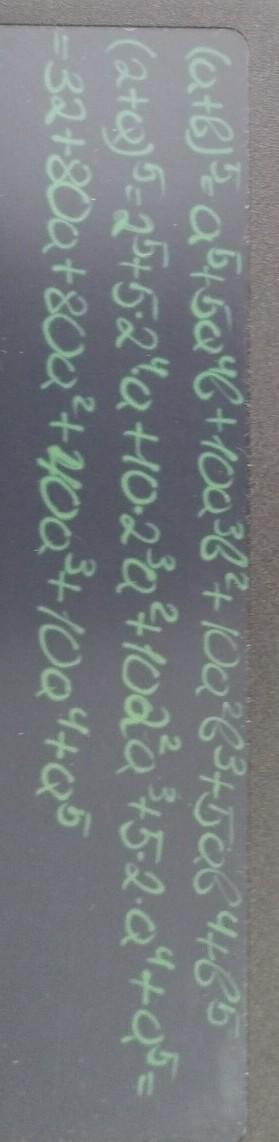 (a+b)⁵=a⁵+5a⁴b+10a³b²+10a²b³+5ab⁴+b⁵
(2+a)⁵=2⁵+5·2⁴a+10·2³a²+10·2²a³+5·2·a⁴+a⁵=
=32+80a+80a²+40a³+10a⁴+a⁵